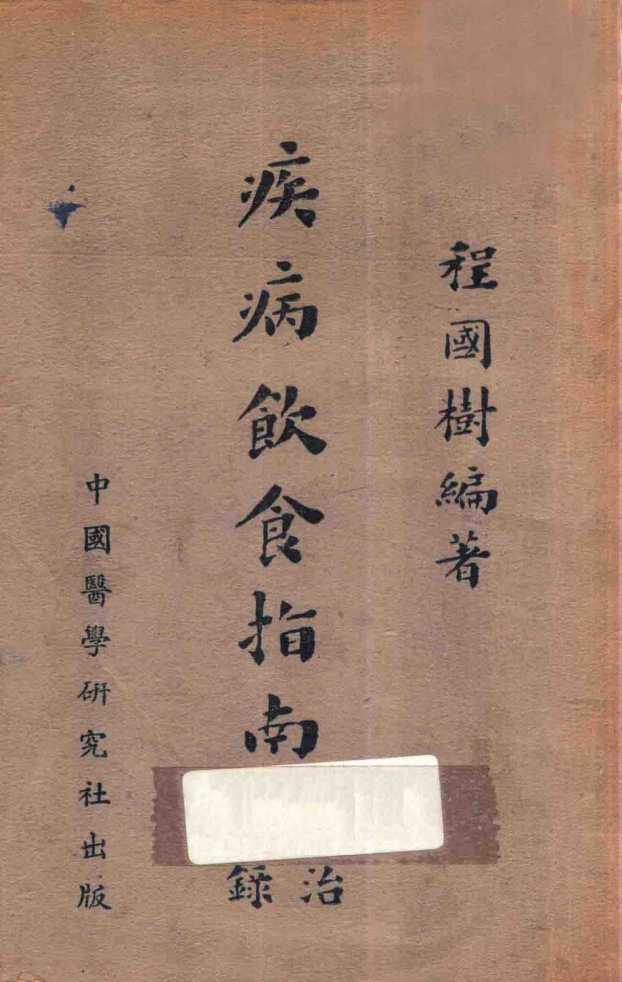 程國樹編著
疾病飲食指南
治
錄
中國醫學研究社出版